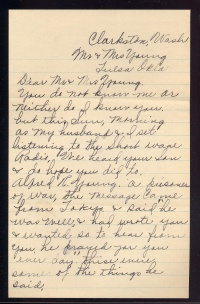 Clarkston, Wash
Mr & Mrs Young
Tulsa Okla
Dear Mr & Mrs Young
You do not know me or
neither do I know you.
but this Sun, Morning
as my husband & I set
listening to the short wave
Radio, We heard your Son
& I do hope you did to,
Alfred Young. a prisoner
of War, The Message Came
from Tokyo & said he
was well & had wrote you
& wanted so to hear from
you, he prayed for you
every day these were
some of the things he
said,